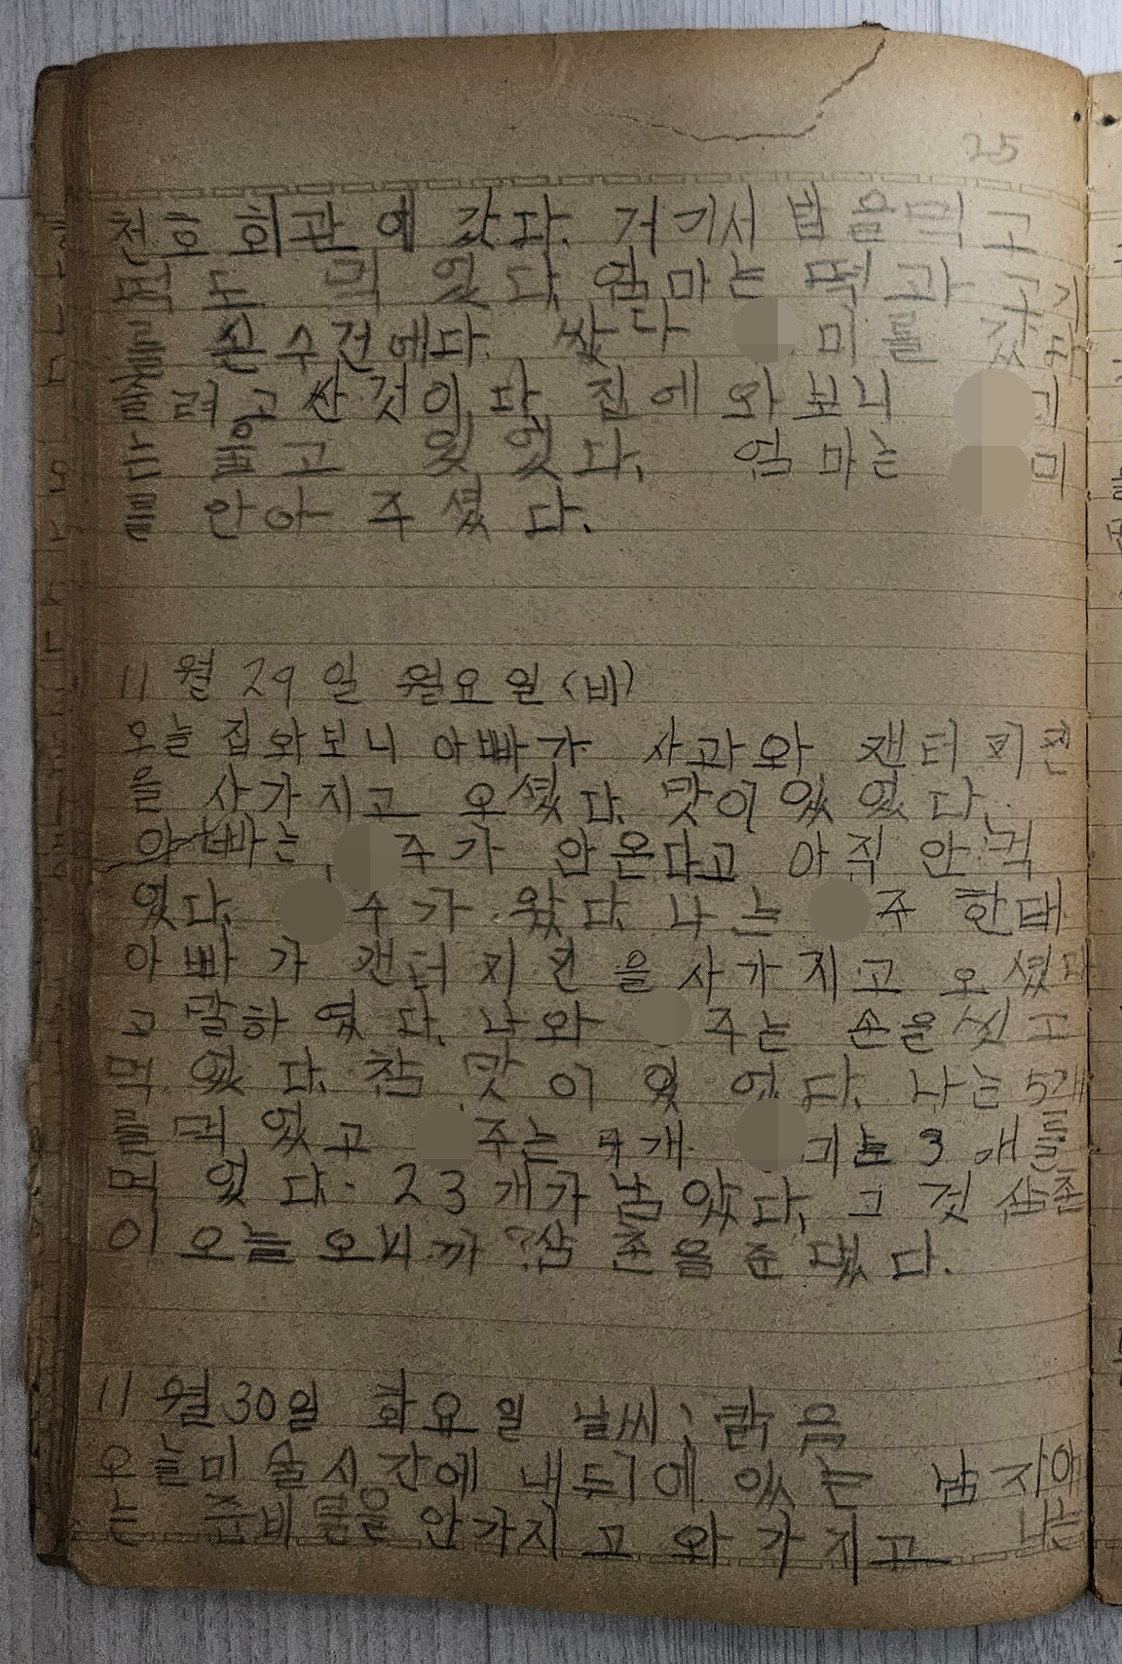 25
천호회관에 갔다. 거기서 밥을먹고
떡도 먹었다. 엄마는 떡과 고기
를 손수건에다. 쌌다 미를 갔다
줄려고싼것이다. 집에 와보니
는 울고 있었다. 엄마는 미
를 안아 주셨다.
11월 29일 월요일 (비)
오늘 집와보니 아빠가 사과와 캔터키친
을 사가지고 오셨다. 맛이있었다.
아빠는 주가 안온다고 아직 안먹
었다. 주가 왔다. 나는 주 한태
아빠가 캔터키친을 사가지고 오셨다
고 말하였다. 나와 주는 손을 씻고
먹었다. 참 맛이 있었다. 나는 5개
를 먹었고 주는 4개 는 3개를
먹었다. 23개가 남았다. 그것 삼촌
이 오늘오니까? 삼촌을 준댔다.
11월30일 화요일 날씨; 맑음
오늘미술시간에 내뒤에 있는 남자아
는 준비물을 안가지고 와가지고 나는